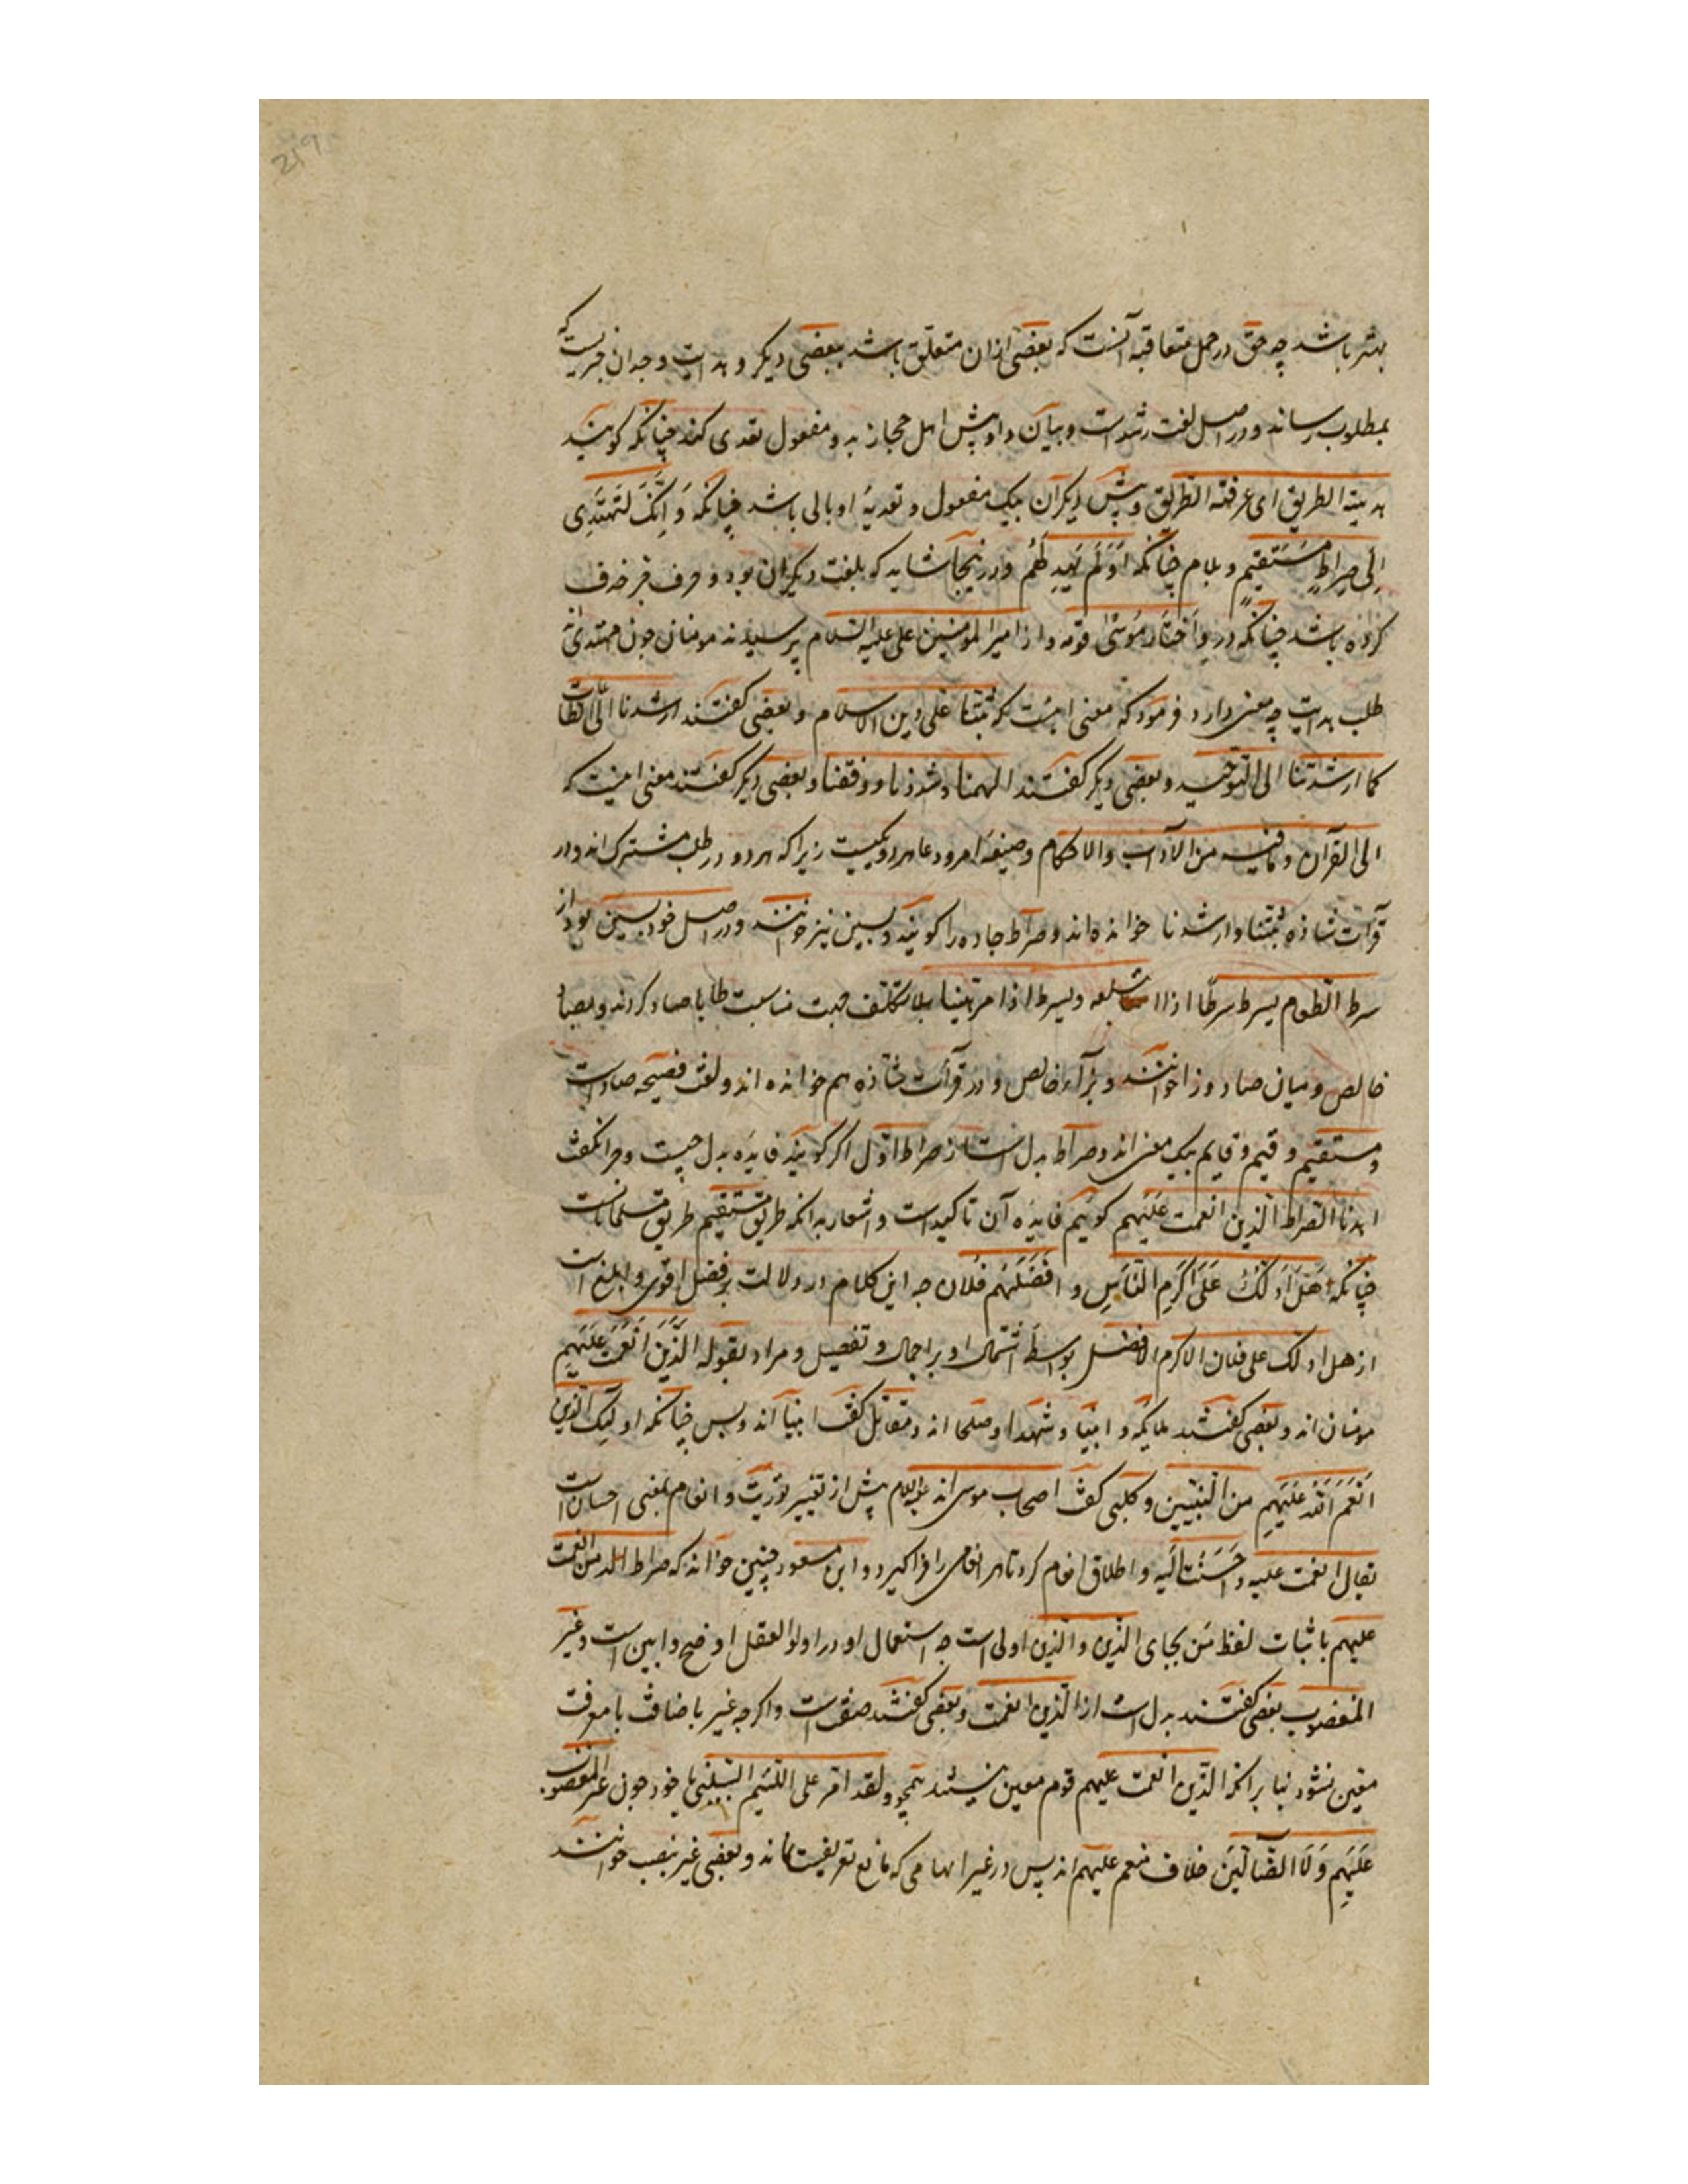 219
بهتر باشد چه حق در جمل متعاقبه آنست که بعضی ازان متعلق باشد ببعضی دیکر و هدایت وجدان چیزیست که
بمطلوب رساند و در اصل لغت رشد است و بیان و او پیش اهل حجاز به دو مفعول تعدی کند چنانکه کویند
هدیته الطریق ای عرفته الطریق و پیش دیکران بیک مفعول و تعدیهٔ او بالی باشد چنانکه وَ اِنَّکَ لَتَهتَدِی
اِلٰی صِراطٍ مُستَقیمٍ و بلام چنانکه اَوَلَم یَهدِ لَهُم و در اینجا شاید که بلغت دیکران بود و حرف جر حذف
کرده باشد چنانکه در وَاختارَ مُوسٰی قومَه و از امیر المومنین علی علیه السلام پرسیدند مومنان چون مهتدی‌اند
طلب هدایت چه معنی دارد فرمود که معنی اینست که ثبّتنا علی دین الاسلام و بعضی کفتند ارشدنا الی الطاعات
کما ارشدتنا الی التوحید و بعضی دیکر کفتند الهمنا رشدنا و وفقنا و بعضی دیکر کفتند معنی اینست که
الی القرآن و ما فیه من الآداب والاحکام و صیغهٔ امر و دعا هر دو یکیست زیرا که هر دو در طلب مشترک‌اند و در
قرآت شاذه ثبتنا و ارشدنا خوانده‌اند و صراط جاده را کویند و بسین نیز خوانند و در اصل خود بسین بود از
سرط الطعام یسرط سرطًا اذا ابتلعه و یسرط اذا مر لینا بلا تکلف جهت مناسبت طا با صاد کردند و بصاد
خالص و میان صاد و زا خوانند و بزآء خالص و در قرآت شاذه هم خوانده‌اند و لغت فصیحه صاد است
و مستقیم و قیم و قایم بیک معنی‌اند و صراط بدل است از صراط اول اکر کویند فایدهٔ بدل چیست و چرا نکفت
اهدنا الصراط الذین انعمت علیهم کوئیم فایدهٔ آن تاکید است و اشعار بدانکه طریق مستقیم طریق مسلمانانست
چنانکه هَل اَدُلُّکَ عَلٰی اَکرَمِ النّاسِ و افضَلَهُم فُلان چه این کلام در دلالت بر فضل اقوی و ابلغ است
از هل ادلک علی فلان الاکرم الافضل بواسطهٔ اشتمال او بر اجمال و تفصیل و مراد بقوله الَّذینَ اَنعَمتَ عَلَیهِم
مومنان‌اند و بعضی کفتند ملایکه و انبیا و شهدا و صلحا اند و مقاتل کفت انبیا اند و بس چنانکه اولئک الذین
اَنعَمَ اللّٰهُ عَلَیهِم من النبیین و کلبی کفت اصحاب موسی‌اند علیه السلام پیش از تغییر توریت و انعام بمعنی احسان است
یقال انعمت علیه و احسنت الیه و اطلاق انعام کرد تا هر انعامی را فرا کیرد و ابن مسعود چنین خوانده که صراط من انعمت
علیهم باثبات لفظ من بجای الذین و الذین اولی است چه استعمال او در اولوا العقل اوضح و ابین است و غیر
المغضوب بعضی کفتند بدل است از الذین انعمت و بعضی کفتند صفت است و اکرچه غیر باضافت با معرفت
معین نشود بنا برانکه الذین انعمت علیهم قوم معین نیستند همچو ولقد امر علی اللئیم یسبنی یا خود چون غیر المغضوب
عَلَیهِم وَ لَا الضّالّین خلاف منعم علیهم‌اند پس در غیر ابهامی که مانع تعریفست نماند و بعضی غیر بنصب خوانند